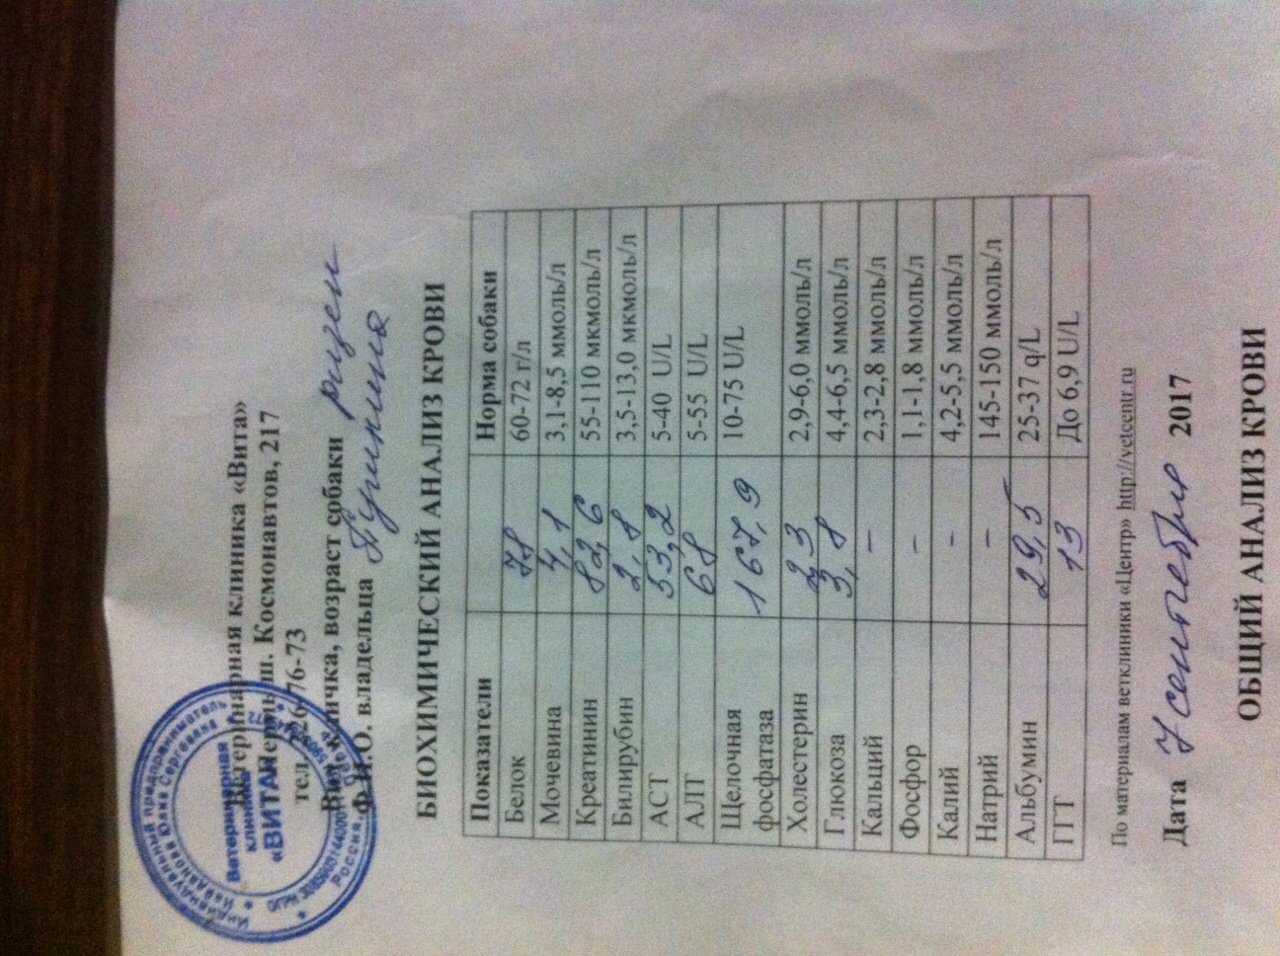 Ветеринарная клиника «Вита»
г. Пермь, ш. Космонавтов, 217
тел. 226-76-73
Вид, кличка, возраст собаки ризен
Ф.И.О. владельца
БИОХИМИЧЕСКИЙ АНАЛИЗ КРОВИ
Показатели Норма собаки
Белок 78 60-72 г/л
Мочевина 4,1 3,1-8,5 ммоль/л
Креатинин 82,6 55-110 мкмоль/л
Билирубин 2,8 3,5-13,0 мкмоль/л
АСТ 53,2 5-40 U/L
АЛТ 68 5-55 U/L
Щелочная фосфатаза 167,9 10-75 U/L
Холестерин 2,9-6,0 ммоль/л
Глюкоза 3,8 4,4-6,5 ммоль/л
Кальций – 2,3-2,8 ммоль/л
Фосфор – 1,1-1,8 ммоль/л
Калий – 4,2-5,5 ммоль/л
Натрий – 145-150 ммоль/л
Альбумин 29,5 25-37 q/L
ГГТ 13 До 6,9 U/L
По материалам ветклиники «Центр» http://vetcentr.ru
Дата 7 сентября 2017
ОБЩИЙ АНАЛИЗ КРОВИ
Индивидуальный предприниматель
Найданова Юлия Сергеевна
Ветеринарная
клиника
«ВИТА»
Россия